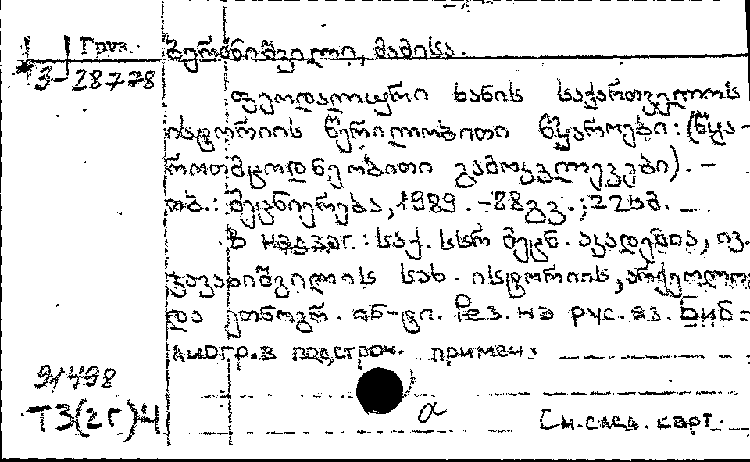 Груз. ბერძნიშვილი, მამისა.
3-28778
ფეოდალური ხანის საქართველოს
ისტორიის წერილობითი წყაროები: (წყა-
როთმცოდნეობითი გამოკვლევები). –
თბ.: მეცნიერება, 1989. -88გვ.; 22სმ.
В надзаг.: საქ. სსრ მეცნ. აკადემია, ივ.
ჯავახიშვილის სახ. ისტორიის, არქეოლოგ
და ეთნოგრ. ინ-ტი. Рез. на рус. яз. Биб-
лиогр. в подстроч. примеч.
91498
Т3(2Г)4
а
См. след. карт.